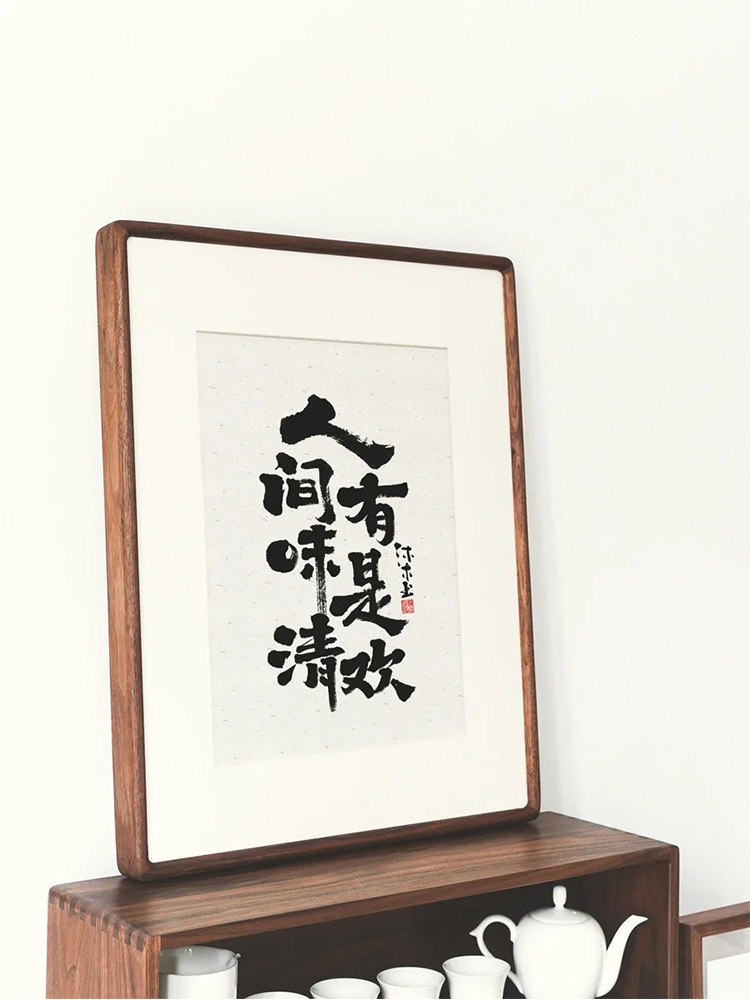 人
间有
味是
清欢